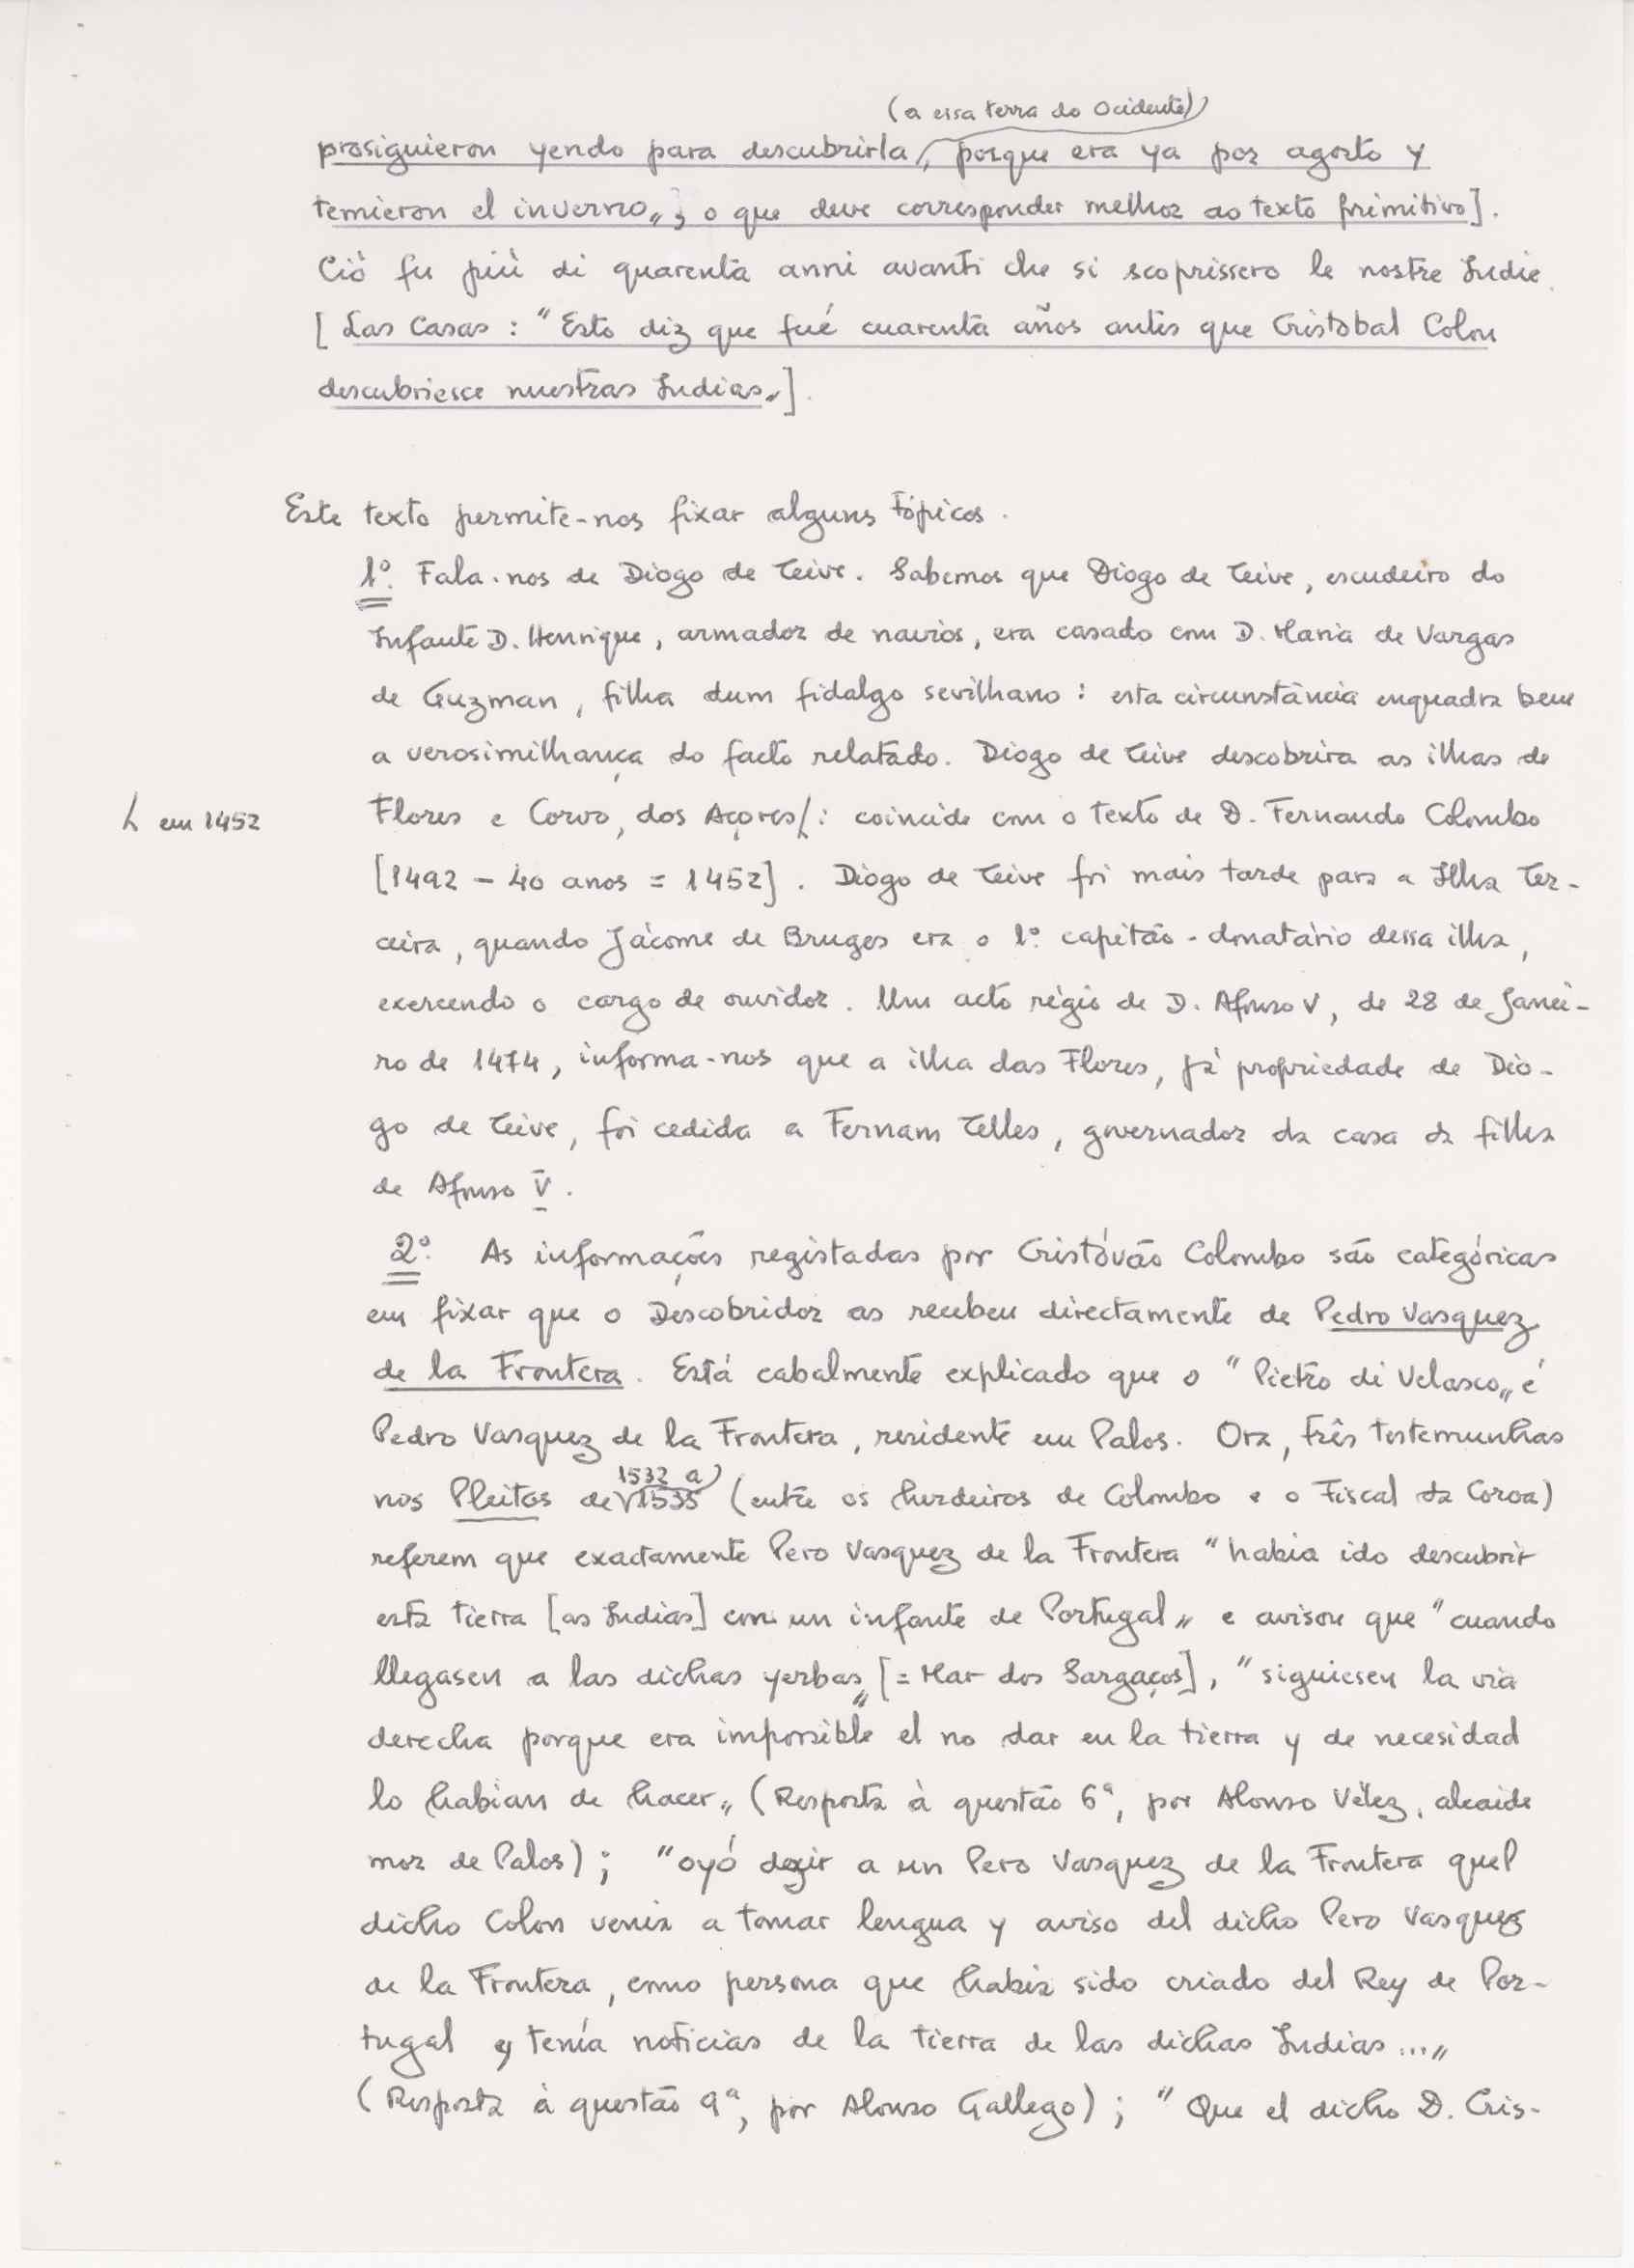 (a essa terra do Ocidente)
prosiguieron yendo para descubrirla, porque era ya por agosto y
temieron el inverno„; o que deve corresponder melhor ao texto primitivo].
Ciò fu più di quarenta anni avanti che si scoprissero le nostre Indie.
[Las Casas: "Esto diz que fué cuarenta años antes que Cristobal Colon
descubriesce nuestras Indias„].
Este texto permite-nos fixar alguns tópicos.
1º. Fala-nos de Diogo de Teive. Sabemos que Diogo de Teive, escudeiro do
Infante D. Henrique, armador de navios, era casado com D. Maria de Vargas
de Guzman, filha dum fidalgo sevilhano: esta circunstância enquadra bem
a verosimilhança do facto relatado. Diogo de Teive descobrira as ilhas de
Flores e Corvo, dos Açores: coincide com o texto de D. Fernando Colombo
em 1452
[1492 - 40 anos = 1452]. Diogo de Teive foi mais tarde para a Ilha Ter-
ceira, quando Jácome de Bruges era o 1º. capitão-donatário dessa ilha,
exercendo o cargo de ouvidor. Um acto régio de D. Afonso V, de 28 de Janei-
ro de 1474, informa-nos que a ilha das Flores, já propriedade de Dio-
go de Teive, foi cedida a Fernam Telles, governador da casa da filha
de Afonso V.
2º. As informações registadas por Cristóvão Colombo são categóricas
em fixar que o Descobridor as recebeu directamente de Pedro Vasquez
de la Frontera. Está cabalmente explicado que o "Pietro di Velasco„ é
Pedro Vasquez de la Frontera, residente em Palos. Ora, três testemunhas
1532 a
nos Pleitos de 1535 (entre os herdeiros de Colombo e o Fiscal da Coroa)
referem que exactamente Pero Vasquez de la Frontera "habia ido descubrir
esta tierra [as Indias] con un infante de Portugal„ e avisou que "cuando
llegasen a las dichas yerbas„ [= Mar dos Sargaços], "siguiesen la via
derecha porque era impossible el no dar en la tierra y de necesidad
lo habian de hacer„ (Resposta à questão 6ª, por Alonso Vélez, alcaide
mor de Palos); "oyó dezir a un Pero Vasquez de la Frontera quel
dicho Colon venia a tomar lengua y aviso del dicho Pero Vasquez
de la Frontera, como persona que habia sido criado del Rey de Por-
tugal y tenía noticias de la tierra de las dichas Indias...„
(Resposta à questão 9ª, por Alonso Gallego); "Que el dicho D. Cris-